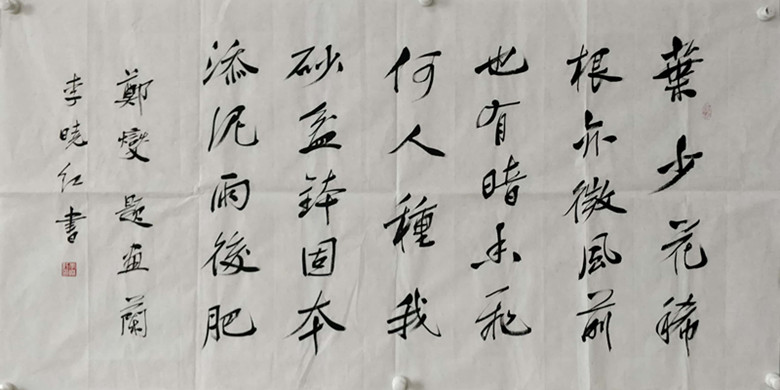 葉少花稀
根亦微風前
也有暗香飛
何人種我
砂盆鉢固本
添泥雨後肥
鄭燮題画蘭
李曉红書